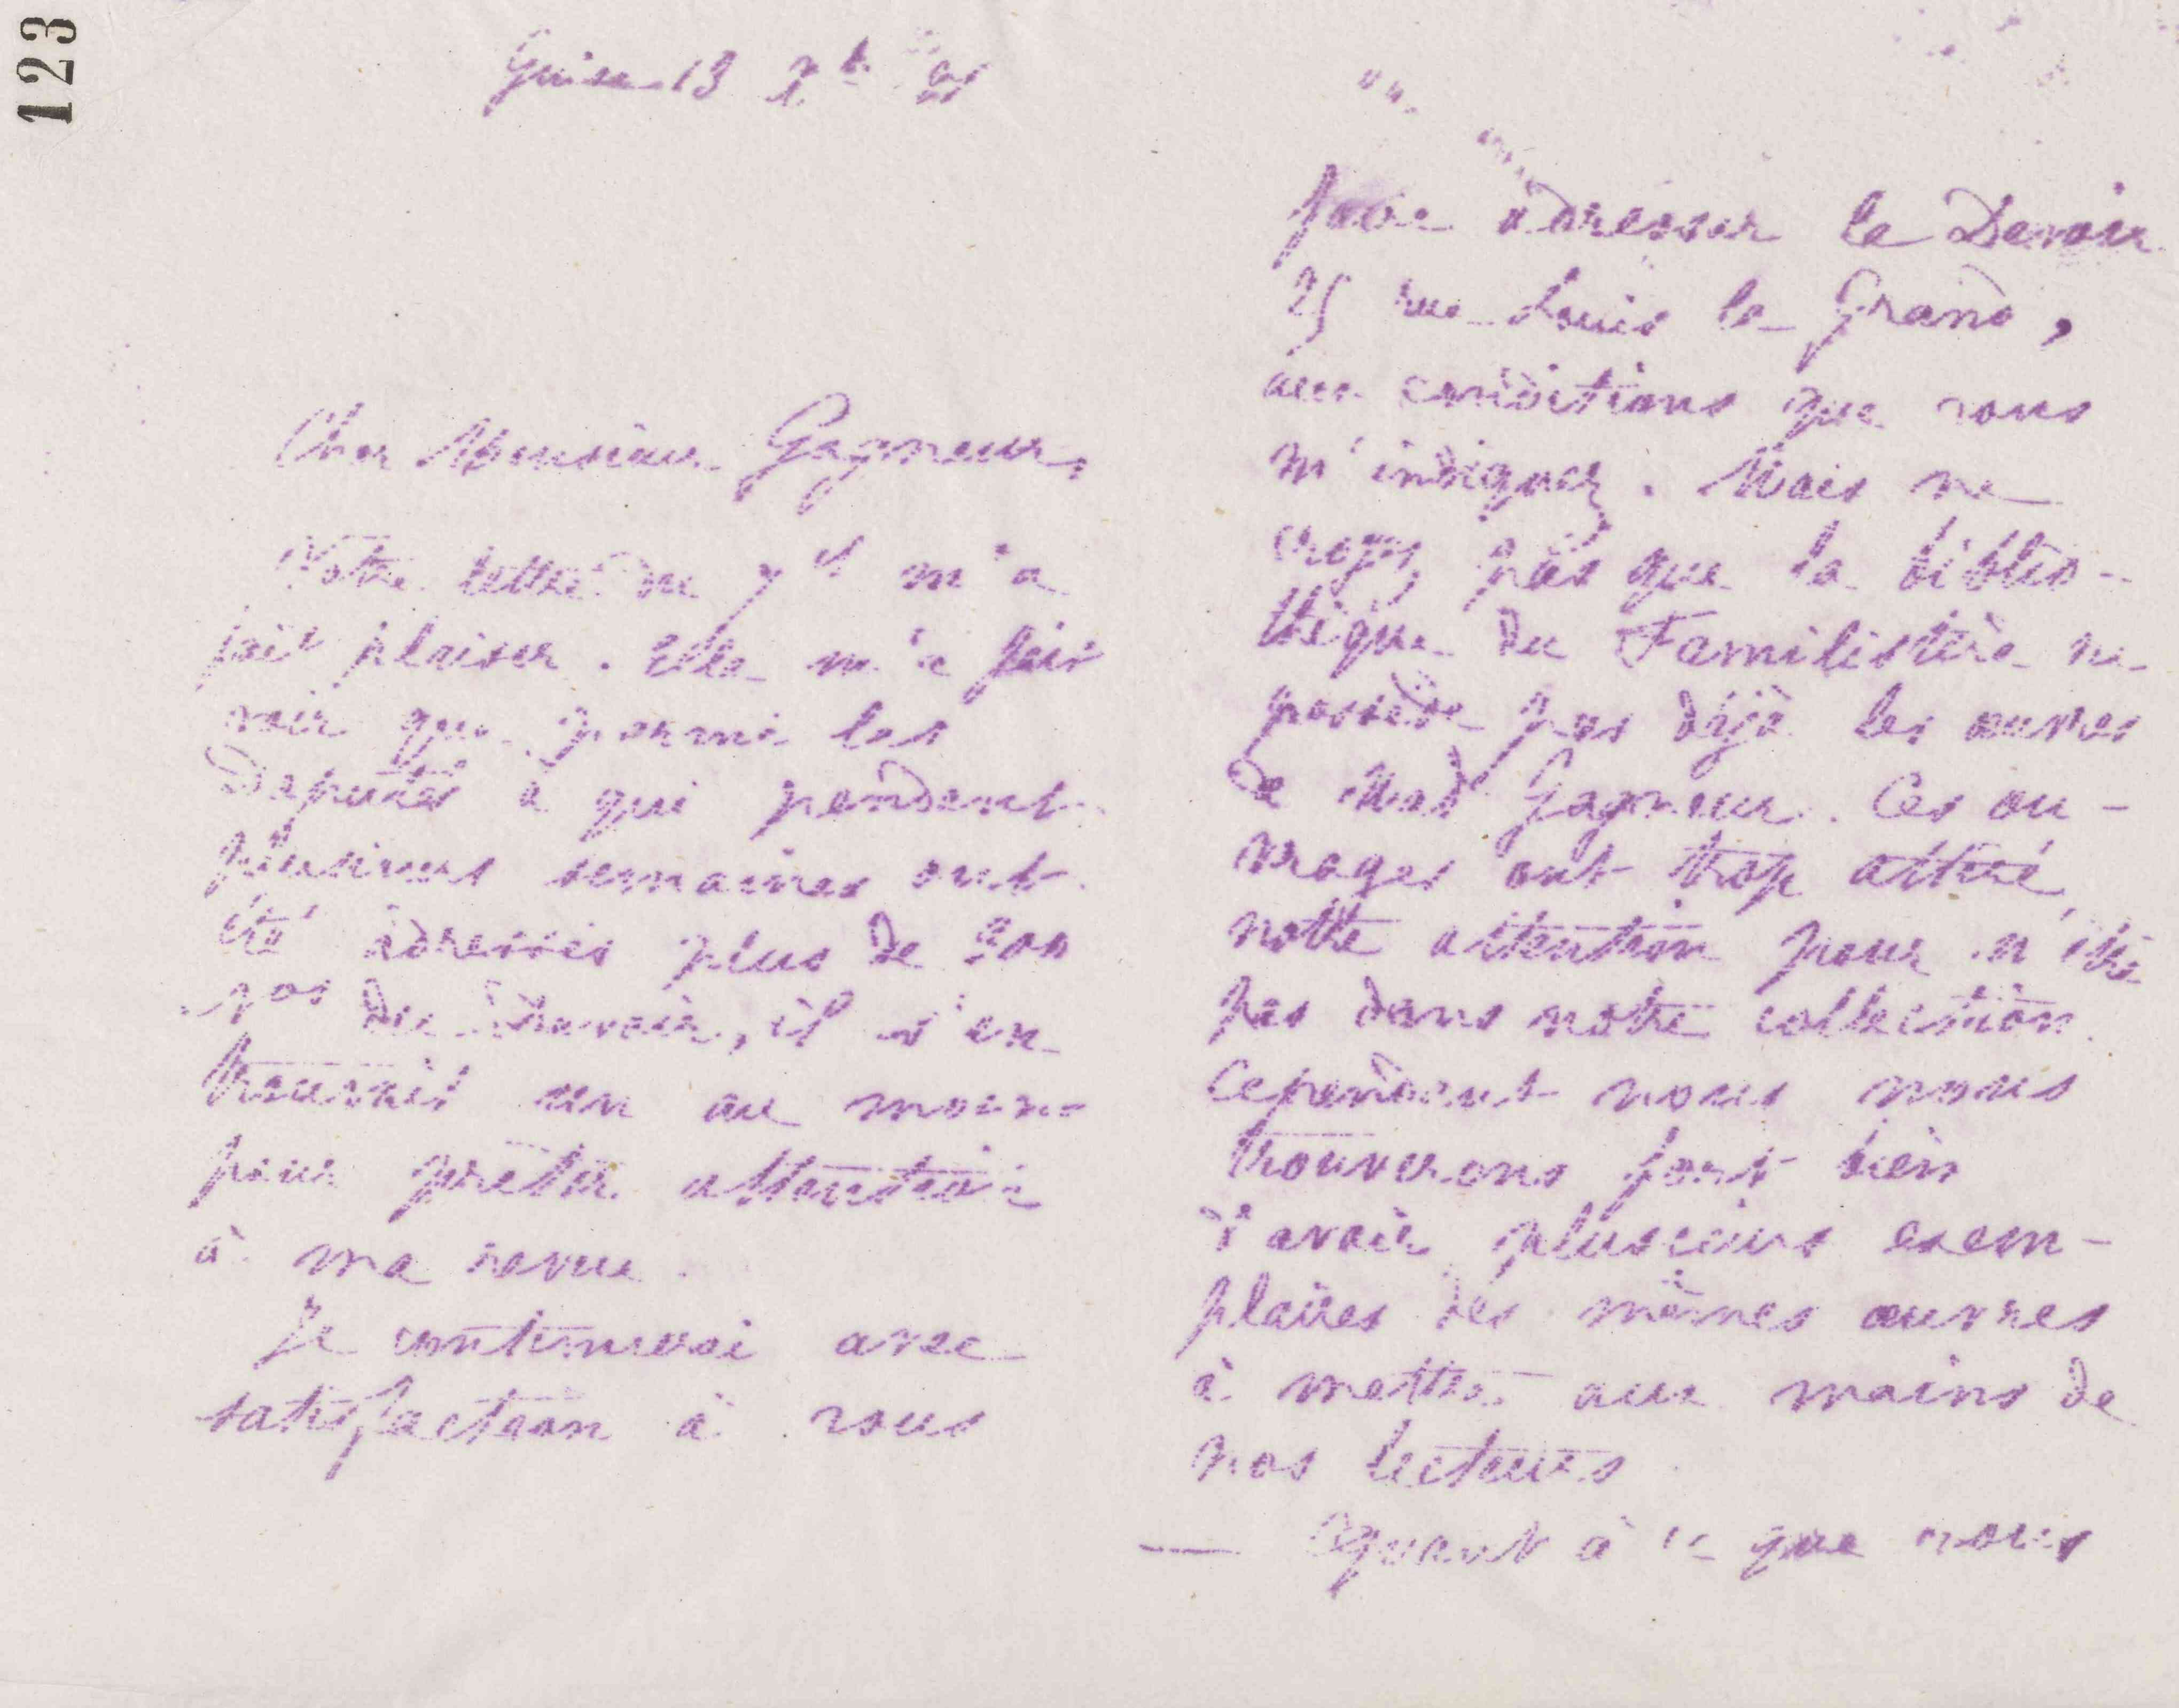 123
Guise 13 Xbre
Cher Monsieur Gagneur,
Votre lettre du 7 ct m'a
fait plaisir. Elle m'a fait
voir que parmi les
Députés à qui pendant
plusieurs semaines ont
été adressés plus de
nos du Devoir, il s'en
trouvait un au moins
pour prêter attention
à ma revue.
Je continuerai avec
satisfaction à vous
faire adresser le Devoir
25 rue Louis le Grand,
aux conditions que vous
m'indiquez. Mais ne
croyez pas que la biblio-
thèque du Familistère ne
possède pas déjà les œuvres
de Made Gagneur. Ces ou-
vrages ont trop attiré
notre attention pour n'être
pas dans notre collection.
Cependant nous nous
trouverons fort bien
d'avoir plusieurs exem-
plaires des mêmes œuvres
à mettre aux mains de
nos lecteurs
— Quant à ce que vous